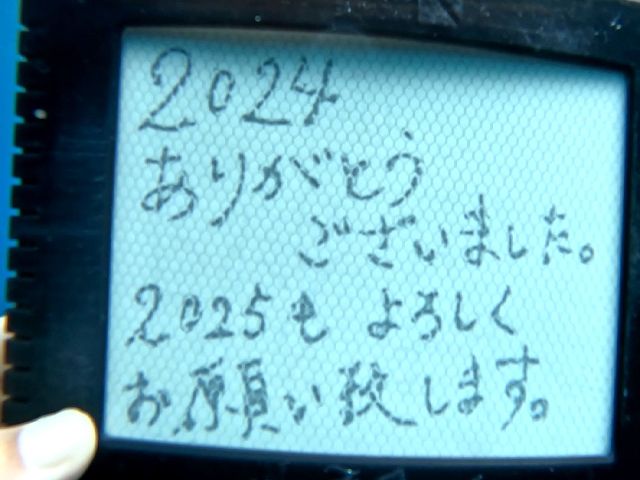 2024
ありがとう
ございました。
2025も よろしく
お願い致します。